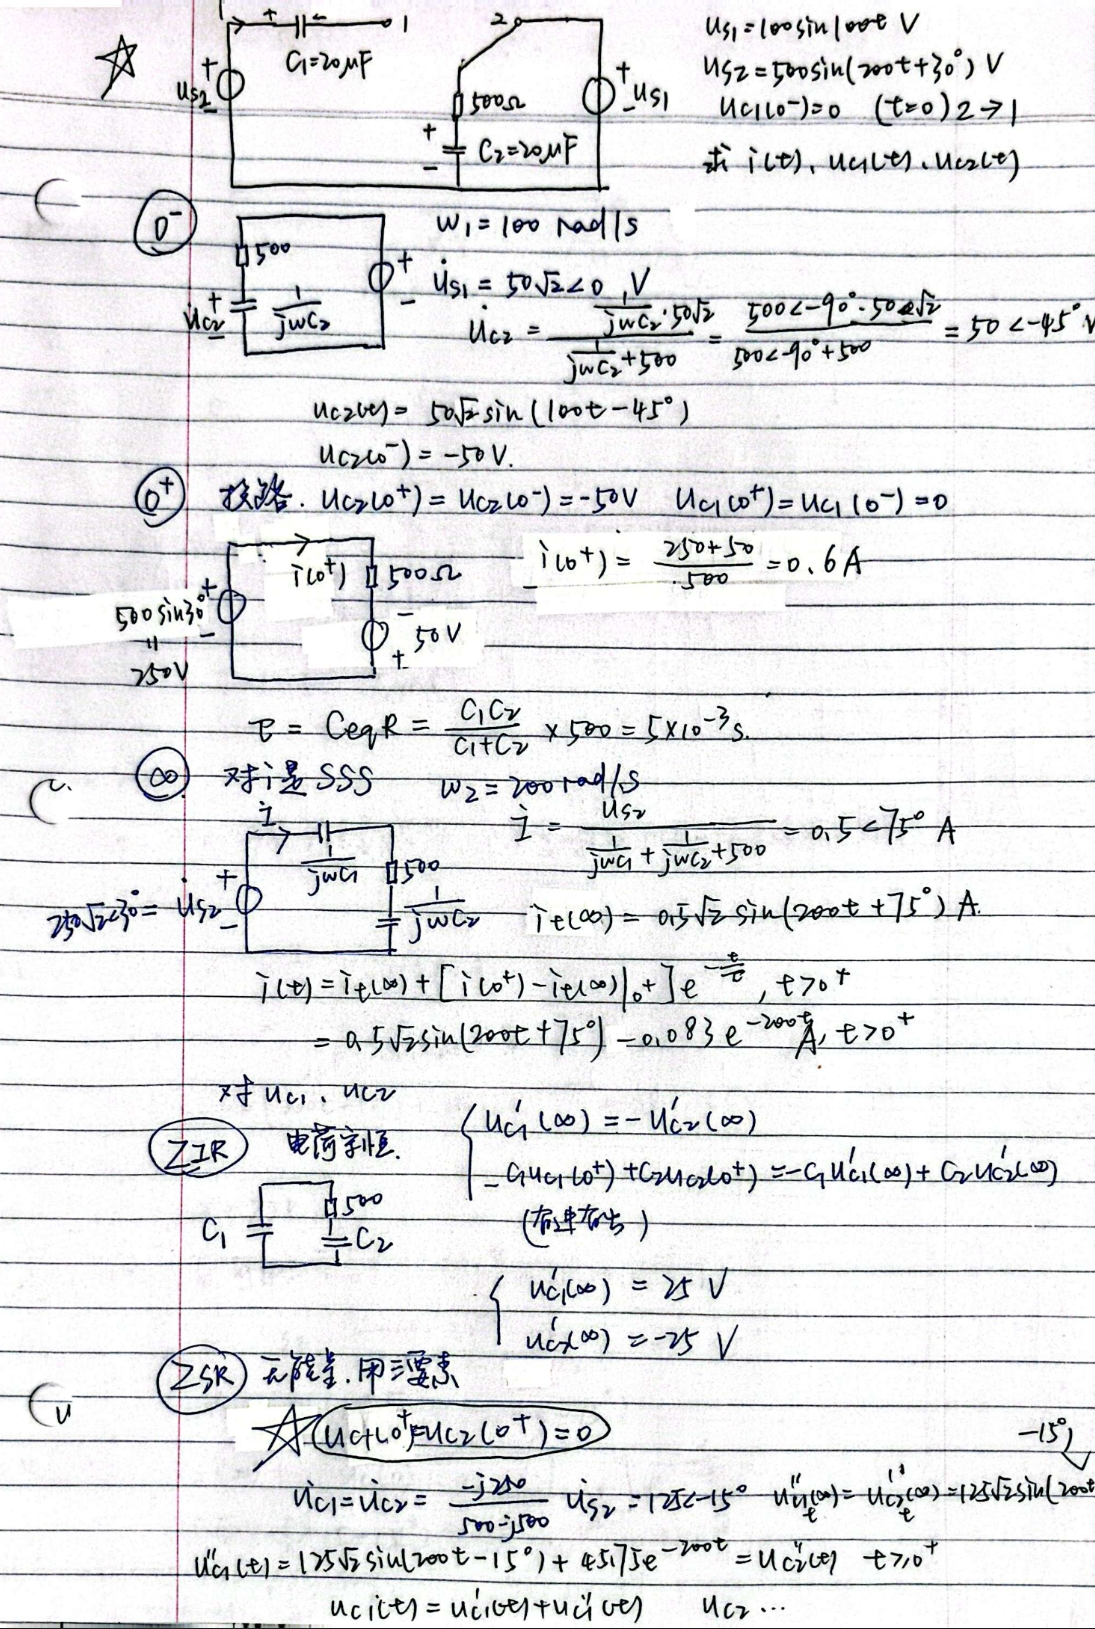 1 + - 1 2
C₁=20μF
uS2 + -
500Ω
+ - C₂=20μF
+ - uS1
uS1=100sin100t V
uS2=500sin(200t+30°) V
uC1(0⁻)=0 (t=0) 2→1
求 i(t)、uC1(t)、uC2(t)
0⁻
500
U̇C2 + - 1/jωC₂
+ -
ω₁=100 rad/s
U̇S1 = 50√2∠0 V
U̇C2 = (1/jωC₂·50√2)/(1/jωC₂+500) = (500∠-90°·50√2)/(500∠-90°+500) = 50∠-45° V
uC2(t)= 50√2sin(100t-45°)
uC2(0⁻)=-50V.
0⁺ 换路. uC2(0⁺)=uC2(0⁻)=-50V uC1(0⁺)=uC1(0⁻)=0
i(0⁺) 500Ω
500sin30° + -
=
250V
- 50V +
i(0⁺)= (250+50)/500 =0.6A
τ = CeqR = C₁C₂/(C₁+C₂) ×500=5×10⁻³s.
∞ 对i是SSS ω₂=200rad/s
İ 1/jωC₁ 500 1/jωC₂
250√2∠30°= U̇S2 + -
İ = US2/(1/jωC₁+1/jωC₂+500) =0.5∠75° A
it(∞)=0.5√2sin(200t+75°) A.
i(t)=it(∞)+[i(0⁺)-it(∞)|0⁺]e^(-t/τ), t>0⁺
=0.5√2sin(200t+75°)-0.083e^(-200t)A, t>0⁺
对uC1、uC2
ZIR 电荷守恒.
{ uC1′(∞)=-uC2′(∞)
-C₁uC1(0⁺)+C₂uC2(0⁺)=-C₁uC1′(∞)+C₂uC2′(∞)
C₁ 500 C₂
{ uC1′(∞) = 25 V
uC2′(∞) =-25 V
ZSR 无能量.用三要素
uC1(0⁺)=uC2(0⁺)=0
U̇C1=U̇C2= -j250/(500-j500) U̇S2 =125∠-15° uC1t″(∞)=uC2t″(∞)=125√2sin(200t-15°)
uC1″(t)=125√2sin(200t-15°)+45.75e^(-200t)=uC2″(t) t>,0⁺
uC1(t)=uC1′(t)+uC1″(t) uC2...